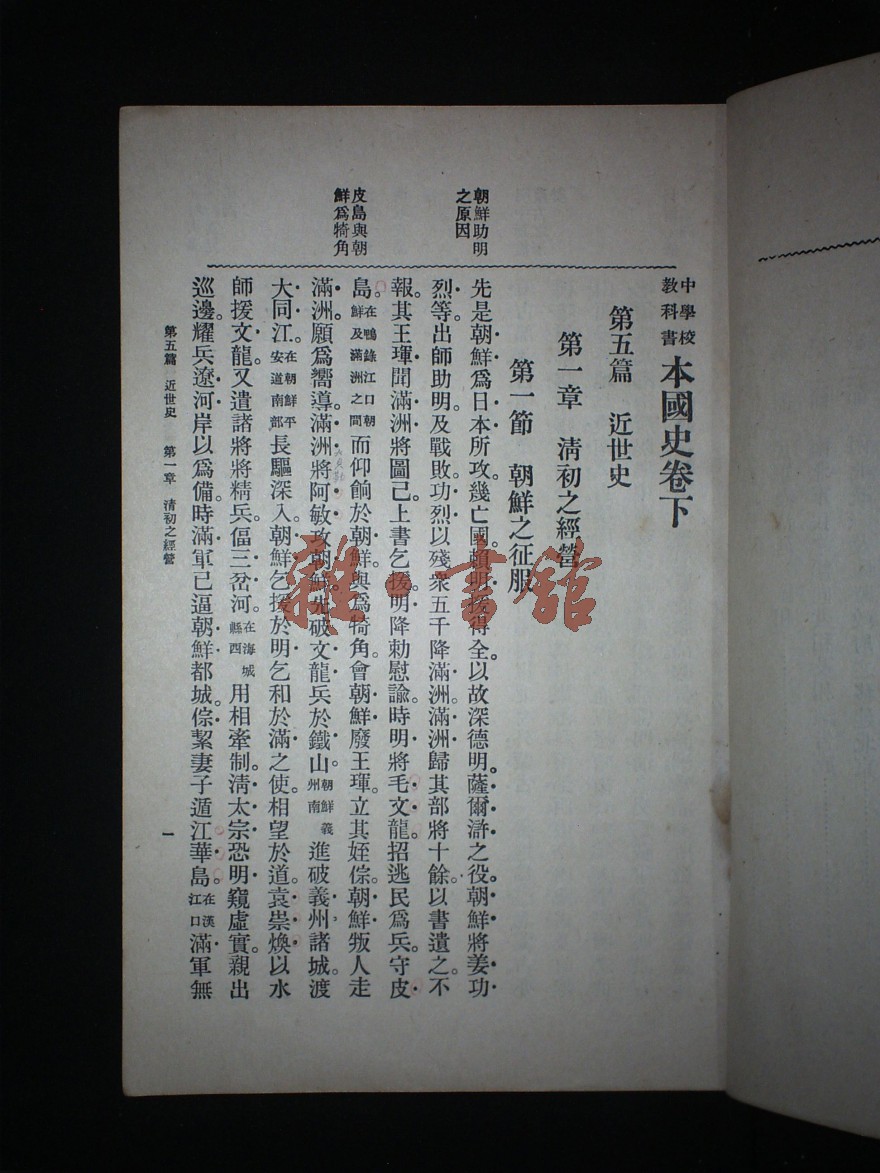 中學校
教科書
本國史卷下
第五篇 近世史
第一章 淸初之經營
第一節 朝鮮之征服
朝鮮助明
之原因
皮島與朝
鮮爲犄角
先是朝鮮爲日本所攻。幾亡國。賴明援得全。以故深德明。薩爾滸之役。朝鮮將姜功
烈等。出師助明。及戰敗。功烈以殘衆五千降滿洲。滿洲歸其部將十餘。以書遺之。不
報。其王琿聞滿洲將圖己。上書乞援。明降勅慰諭。時明將毛文龍。招逃民爲兵。守皮
島。在鴨綠江口朝鮮及滿洲之間而仰餉於朝鮮。與爲犄角。會朝鮮廢王琿。立其姪倧。朝鮮叛人走
滿洲。願爲嚮導。滿洲將阿敏攻朝鮮。先破文龍兵於鐵山。朝鮮義州南進破義州諸城。渡
大同江。在朝鮮平安道南部長驅深入。朝鮮乞援於明。乞和於滿之使。相望於道。袁崇煥以水
師援文龍。又遣諸將將精兵。偪三岔河。在海城縣西用相牽制。淸太宗恐明窺虛實。親出
巡邊。耀兵遼河岸以爲備。時滿軍已逼朝鮮都城。倧絜妻子遁江華島。在漢江口滿軍無
第五篇 近世史 第一章 淸初之經營
一
雜·書館